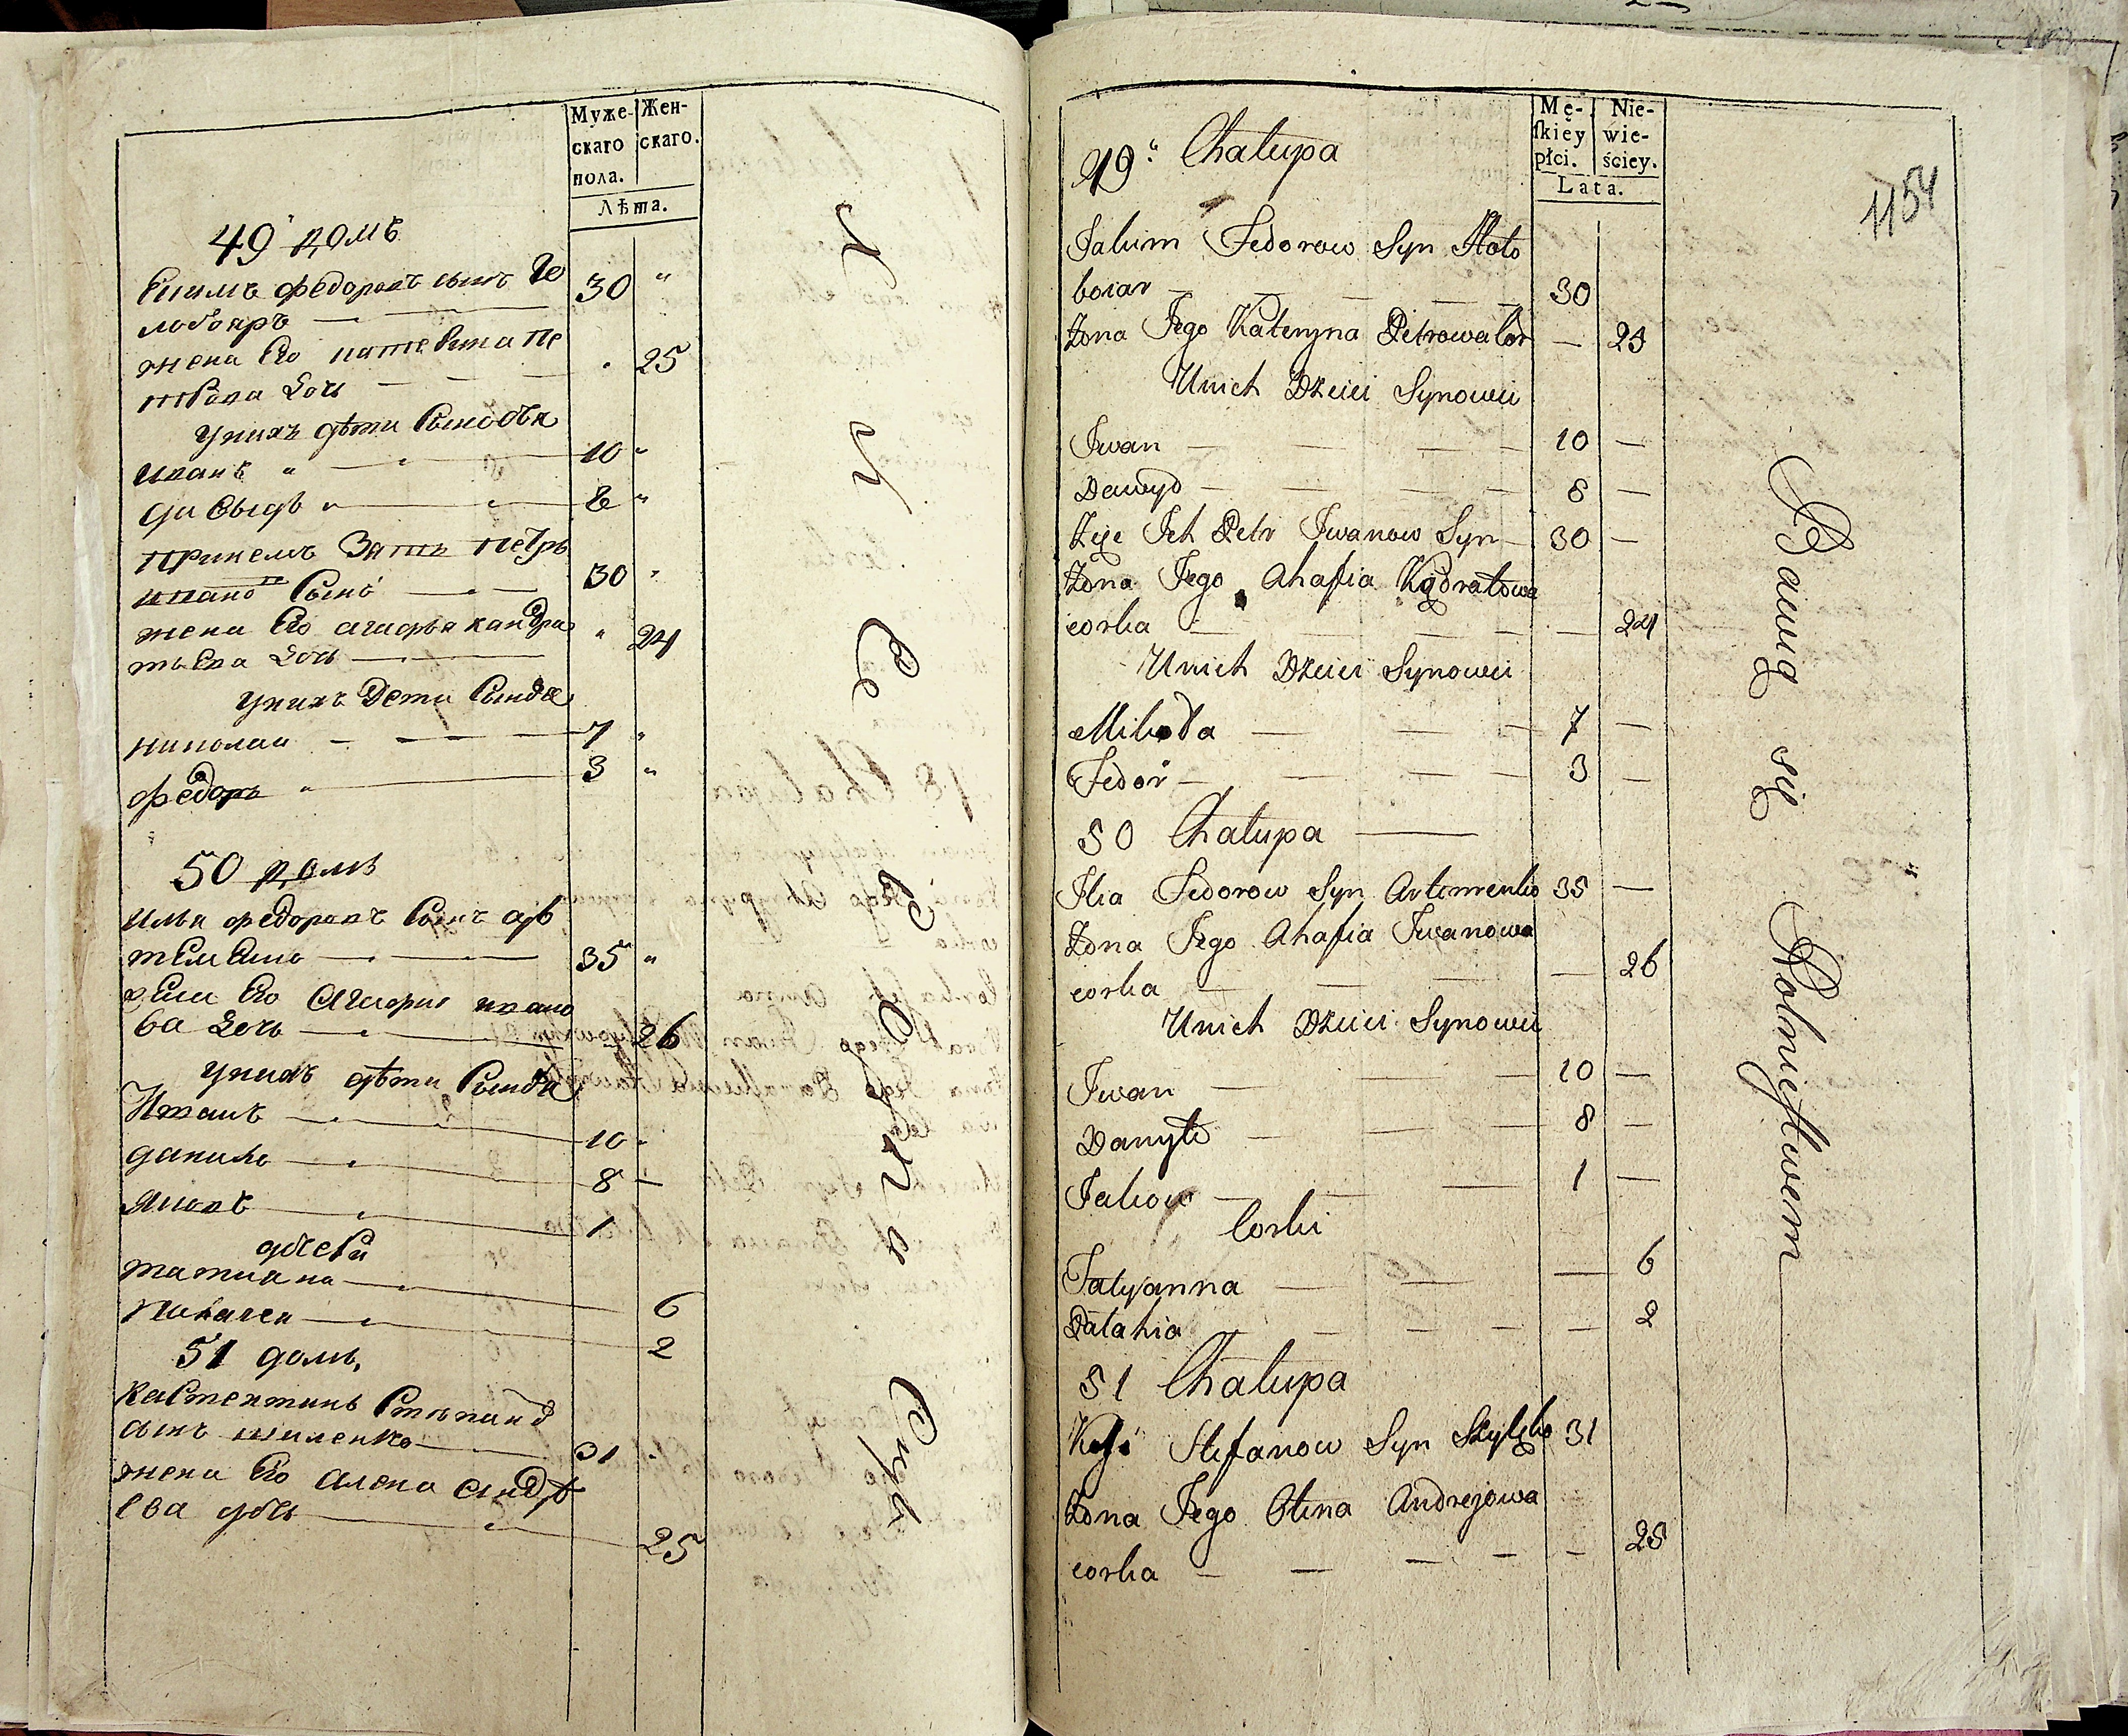 Муже-
скаго
пола.
Жен-
скаго.
Лѣта.
49 домъ
федоровъ сынъ Го
лобояръ 30
жена Его катерина пе
трова дочь 25
унихъ дѣти Сыновья
иванъ 10
давыдъ 8
Зять петръ
ивановъ Сынъ 30
жена Его агафья кандра
тьева дочь 24
унихъ Дети Сыновья
николай 7
федоръ 3
50 домъ
илья федоровъ Сынъ ар
теменко 35
жена Его Агафия ивано
ва дочь 26
унихъ дѣти Сыновья
Иванъ 10
данило 8
яковъ 1
дочери
татиана 6
палагея 2
51 домъ
Костентинъ Степанов
сынъ шиленко 31
жена Его алена андре
ева дочь 25
Mę-
skiey
płci.
Nie-
wie-
ściey.
Lata.
1154
49 Chałupa
Jakim Fedorow Syn Hoło
boiar 30
Żona Jego Kateryna Petrowa cor 25
Unich Dzieci Synowii
Iwan 10
Dawyd 8
Petr Iwanow Syn 30
Żona Jego Ahafia Kądratowa
corka 24
Unich Dzieci Synowii
Mikoła 7
Fedor 3
50 Chałupa
Ilia Fedorow Syn Artemenko 35
Żona Jego Ahafia Iwanowa
corka 26
Unich Dzieci Synowii
Iwan 10
Danyło 8
Jakow 1
Corki
Tatyanna 6
Pałahia 2
51 Chałupa
Stefanow Syn 31
Żona Jego Olena Andrejowa
corka 25
Bawią się Rolnictwem